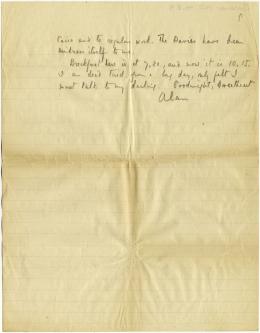 and to regular work. The Davies have been
kindness itself to me.
Breakfast here is at 7.30, and now it is 10.15.
I am dead tired from a long day, only felt I
must talk to my darling. Goodnight, Sweetheart
Alan